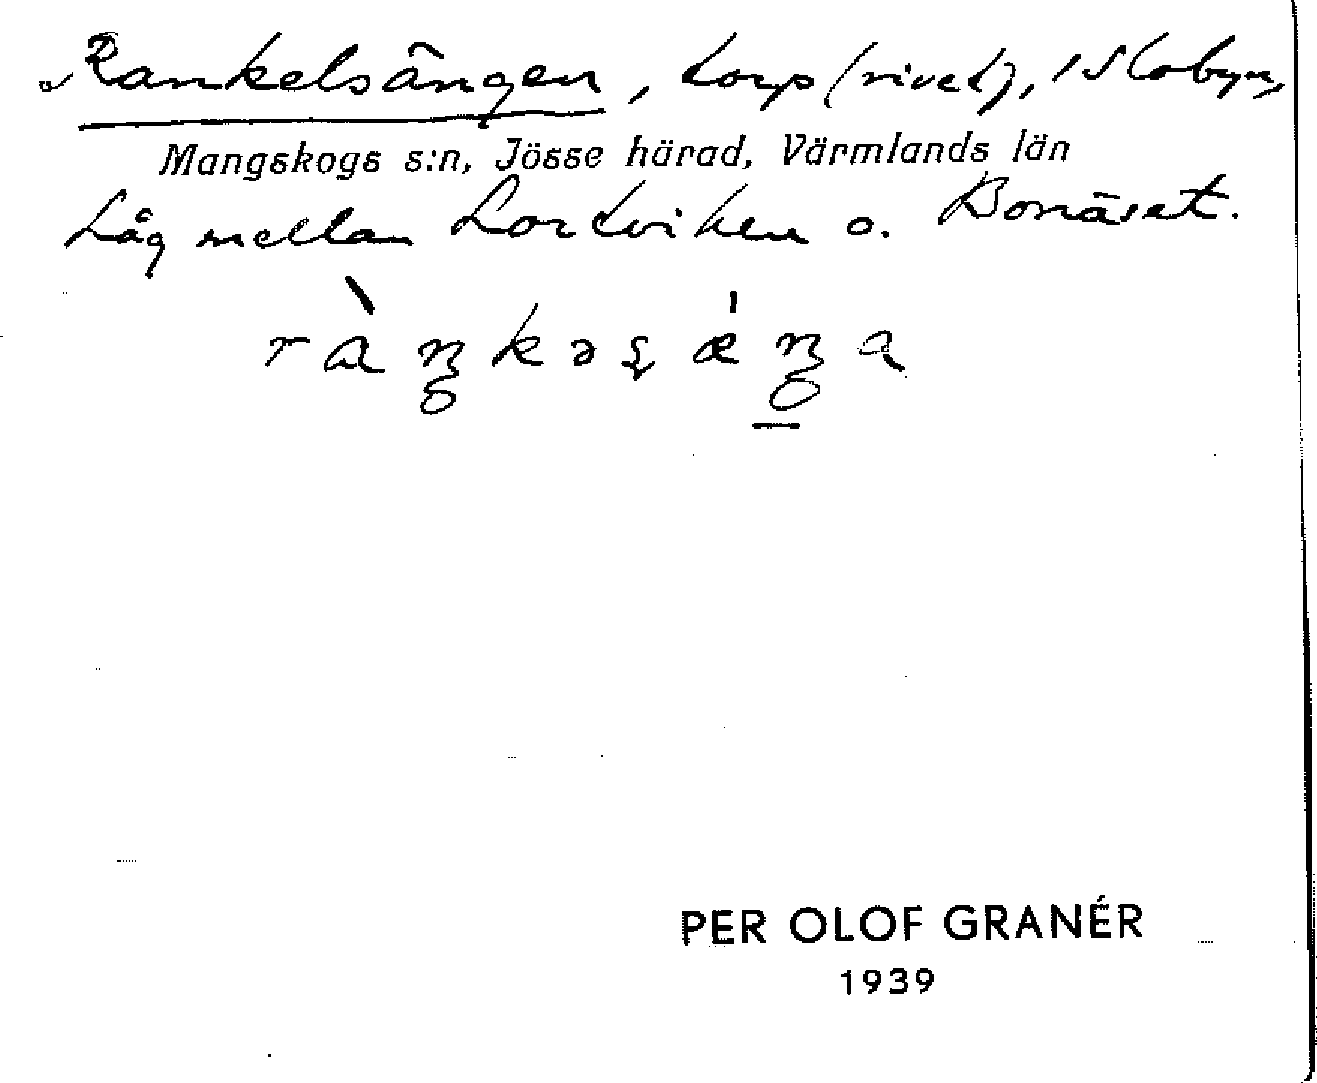 Rankelsängen, torp (rivet), i Skobyn,
Mangskogs s:n, Jösse härad, Värmlands län
Låg mellan Lortviken o. Bonäset.
PER OLOF GRANÉR
1939